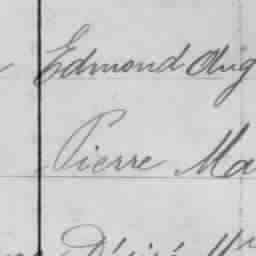 Edmond Aug
Pierre Ma
Désiré